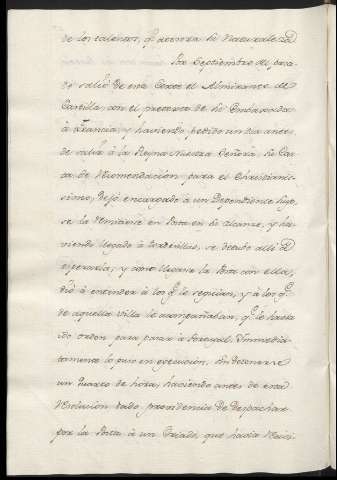 de los talentos, q.e atesora su Naturaleza
Por Septiembre del pasa-
do salió de esta Corte el Almirante de
Castilla con el pretexto de su Embaxada
à Francia, y haviendo pedido un dia antes
de salir à la Reyna Nuestra Señora, su Car-
ta de Recomendacion para el Christianis-
simo, dejó encargado à un Dependiente suyo,
se la remitiese en Posta en su alcanze, y ha-
viendo llegado à Tordesillas, se detubo alli à
esperarla, y como llegase la Posta con ella,
dió à entender à los q.e le seguian, y à los q.e
de aquella Villa le acompañaban, q.e le havia
ido orden para pasar à Portugal. Immedia-
tamente lo puso en execucion, sin detenerse
un quarto de hora, haciendo antes de esta
Resolucion dado providencia de Despachar
por la Posta à un Criado, que havia